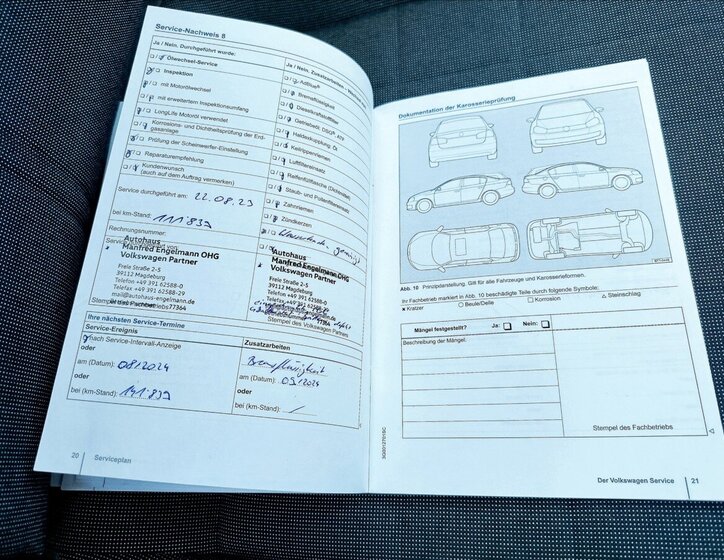 Service-Nachweis 8
Ja / Nein. Durchgeführt wurde:
Ölwechsel-Service
Inspektion
mit Motorölwechsel
mit erweitertem Inspektionsumfang
LongLife Motoröl verwendet
Korrosions- und Dichtheitsprüfung der Erd-
gasanlage
Prüfung der Scheinwerfer-Einstellung
Reparaturempfehlung
Kundenwunsch
(auch auf dem Auftrag vermerken)
Service durchgeführt am: 22.08.23
bei km-Stand: 111'839
Rechnungsnummer:
Autohaus
Manfred Engelmann OHG
Volkswagen Partner
Freie Straße 2-5
39112 Magdeburg
Telefon +49 391 62588-0
Telefax +49 391 62588-29
mail@autohaus-engelmann.de
77364
Ja / Nein. Zusatzarbeiten
AdBlue®
Bremsflüssigkeit
Dieselkraftstofffilter
Getriebeöl, DSG®
Haldexkupplung, Öl
Keilrippenriemen
Luftfiltereinsatz
Reifenfüllflasche (Dichtmittel)
Staub- und Pollenfiltereinsatz
Zahnriemen
Zündkerzen
Autohaus
Manfred Engelmann OHG
Volkswagen Partner
Freie Straße 2-5
39112 Magdeburg
Telefon +49 391 62588-0
77364
Stempel des Volkswagen Partners
Ihre nächsten Service-Termine
Service-Ereignis
nach Service-Intervall-Anzeige
oder
am (Datum): 08/2024
oder
bei (km-Stand): 141'839
Zusatzarbeiten
Bremsflüssigkeit
am (Datum): 09.2024
oder
bei (km-Stand): /
20 Serviceplan
Dokumentation der Karosserieprüfung
Abb. 10 Prinzipdarstellung. Gilt für alle Fahrzeuge und Karosserieformen.
Ihr Fachbetrieb markiert in Abb. 10 beschädigte Teile durch folgende Symbole:
× Kratzer ○ Beule/Delle □ Korrosion △ Steinschlag
Mängel festgestellt? Ja: Nein:
Beschreibung der Mängel:
Stempel des Fachbetriebs
3G0012701SC
Der Volkswagen Service 21